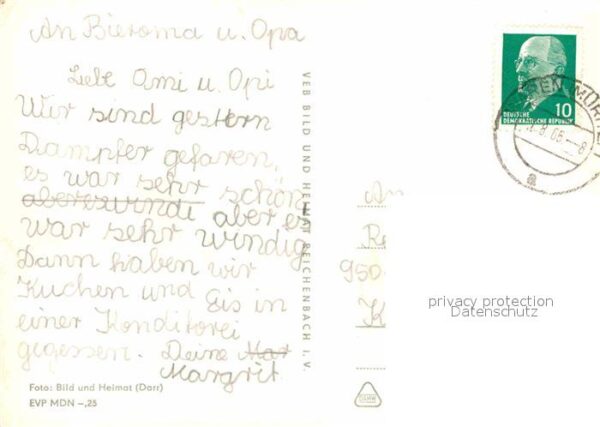 An Bieroma u. Opa
Liebe Omi u. Opi
Wir sind gestern
Dampfer gefaren,
es war sehr schön
aberes windi aber es
war sehr windig
Dann haben wir
Kuchen und Eis in
einer Konditorei
gegessen. Deine Mar
Margrit
Foto: Bild und Heimat (Darr)
EVP MDN –,25
VEB BILD UND HEIMAT REICHENBACH I. V.
10
DEUTSCHE
DEMOKRATISCHE REPUBLIK
An
950
K
privacy protection
Datenschutz